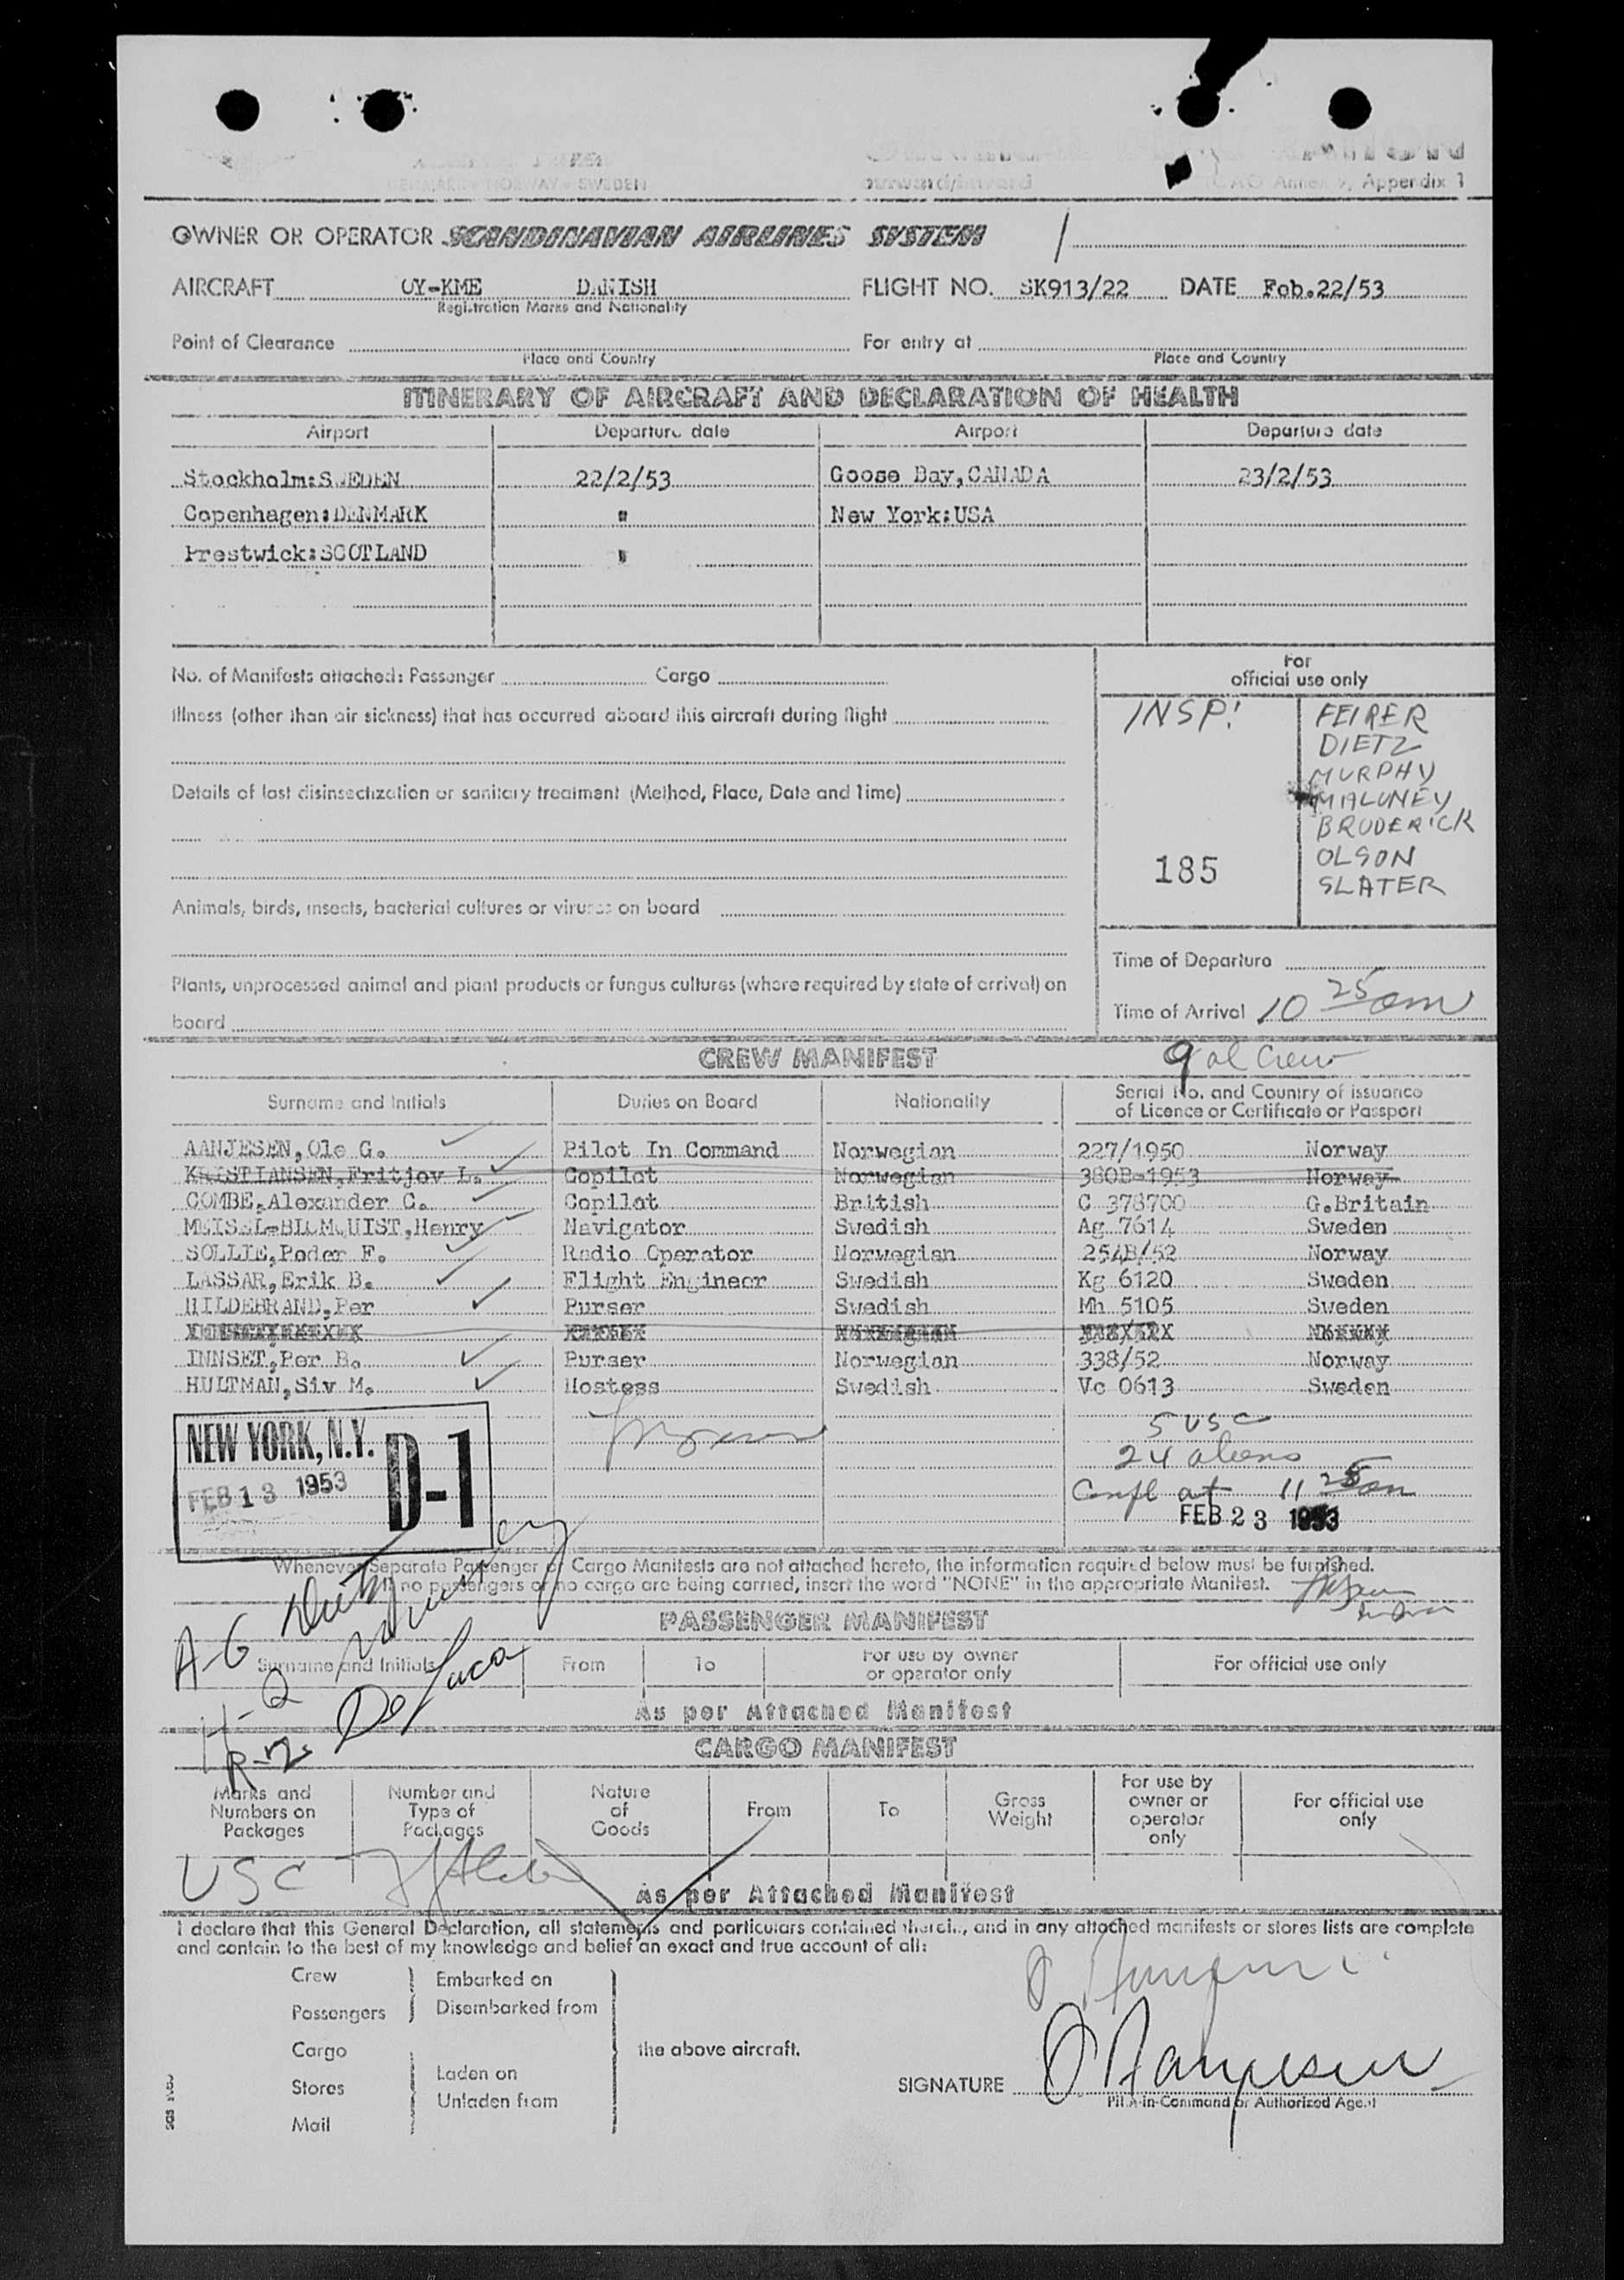 DENMARK - NORWAY - SWEDEN
ICAO Annex 9, Appendix 1
OWNER OR OPERATOR SCANDINAVIAN AIRLINES SYSTEM /
AIRCRAFT OY-KME DANISH FLIGHT NO. SK913/22 DATE Feb.22/53
Registration Marks and Nationality
Point of Clearance For entry at
Place and Country Place and Country
ITINERARY OF AIRCRAFT AND DECLARATION OF HEALTH
Airport Departure date Airport Departure date
Stockholm:SWEDEN 22/2/53 Goose Bay,CANADA 23/2/53
Copenhagen:DENMARK " New York:USA
Prestwick:SCOTLAND "
No. of Manifests attached: Passenger Cargo
For
official use only
Illness (other than air sickness) that has occurred aboard this aircraft during flight
INSP! FEIRER
DIETZ
MURPHY
Details of last disinsectization or sanitary treatment (Method, Place, Date and Time)
MALONEY
BRODERICK
185 OLSON
SLATER
Animals, birds, insects, bacterial cultures or viruses on board
Time of Departure
Plants, unprocessed animal and plant products or fungus cultures (where required by state of arrival) on
board
Time of Arrival 10 25 am
CREW MANIFEST 9 al Crew
Surname and Initials Duties on Board Nationality Serial No. and Country of issuance
of Licence or Certificate or Passport
AANJESEN,Ole G. Pilot In Command Norwegian 227/1950 Norway
KRISTIANSEN,Fritjov L. Copilot Norwegian 380B-1953 Norway
COMBE,Alexander C. Copilot British C 378700 G.Britain
MEISEL-BLOMQUIST,Henry Navigator Swedish Ag 7614 Sweden
SOLLIE,Peder F. Radio Operator Norwegian 254B/52 Norway
LASSAR,Erik B. Flight Engineer Swedish Kg 6120 Sweden
HILDEBRAND,Per Purser Swedish Mh 5105 Sweden
INNSET,Per B. Purser Norwegian 338/52 Norway
HULTMAN,Siv M. Hostess Swedish Vc 0613 Sweden
5 USC
24 aliens
Compl at 11 25 am
FEB 23 1953
NEW YORK, N.Y.
FEB 13 1953
D-1
Whenever Separate Passenger or Cargo Manifests are not attached hereto, the information required below must be furnished.
If no passengers or no cargo are being carried, insert the word "NONE" in the appropriate Manifest.
PASSENGER MANIFEST
A-6 Dietz
Surname and Initials From To For use by owner
or operator only For official use only
H-2
R-2 De Luca
As per Attached Manifest
CARGO MANIFEST
Marks and
Numbers on
Packages Number and
Type of
Packages Nature
of
Goods From To Gross
Weight For use by
owner or
operator
only For official use
only
USC
As per Attached Manifest
I declare that this General Declaration, all statements and particulars contained therein, and in any attached manifests or stores lists are complete
and contain to the best of my knowledge and belief an exact and true account of all:
Crew Embarked on
Passengers Disembarked from
Cargo the above aircraft.
Stores Laden on
Unladen from
Mail
SIGNATURE O Aanjesen
Pilot-in-Command or Authorized Agent